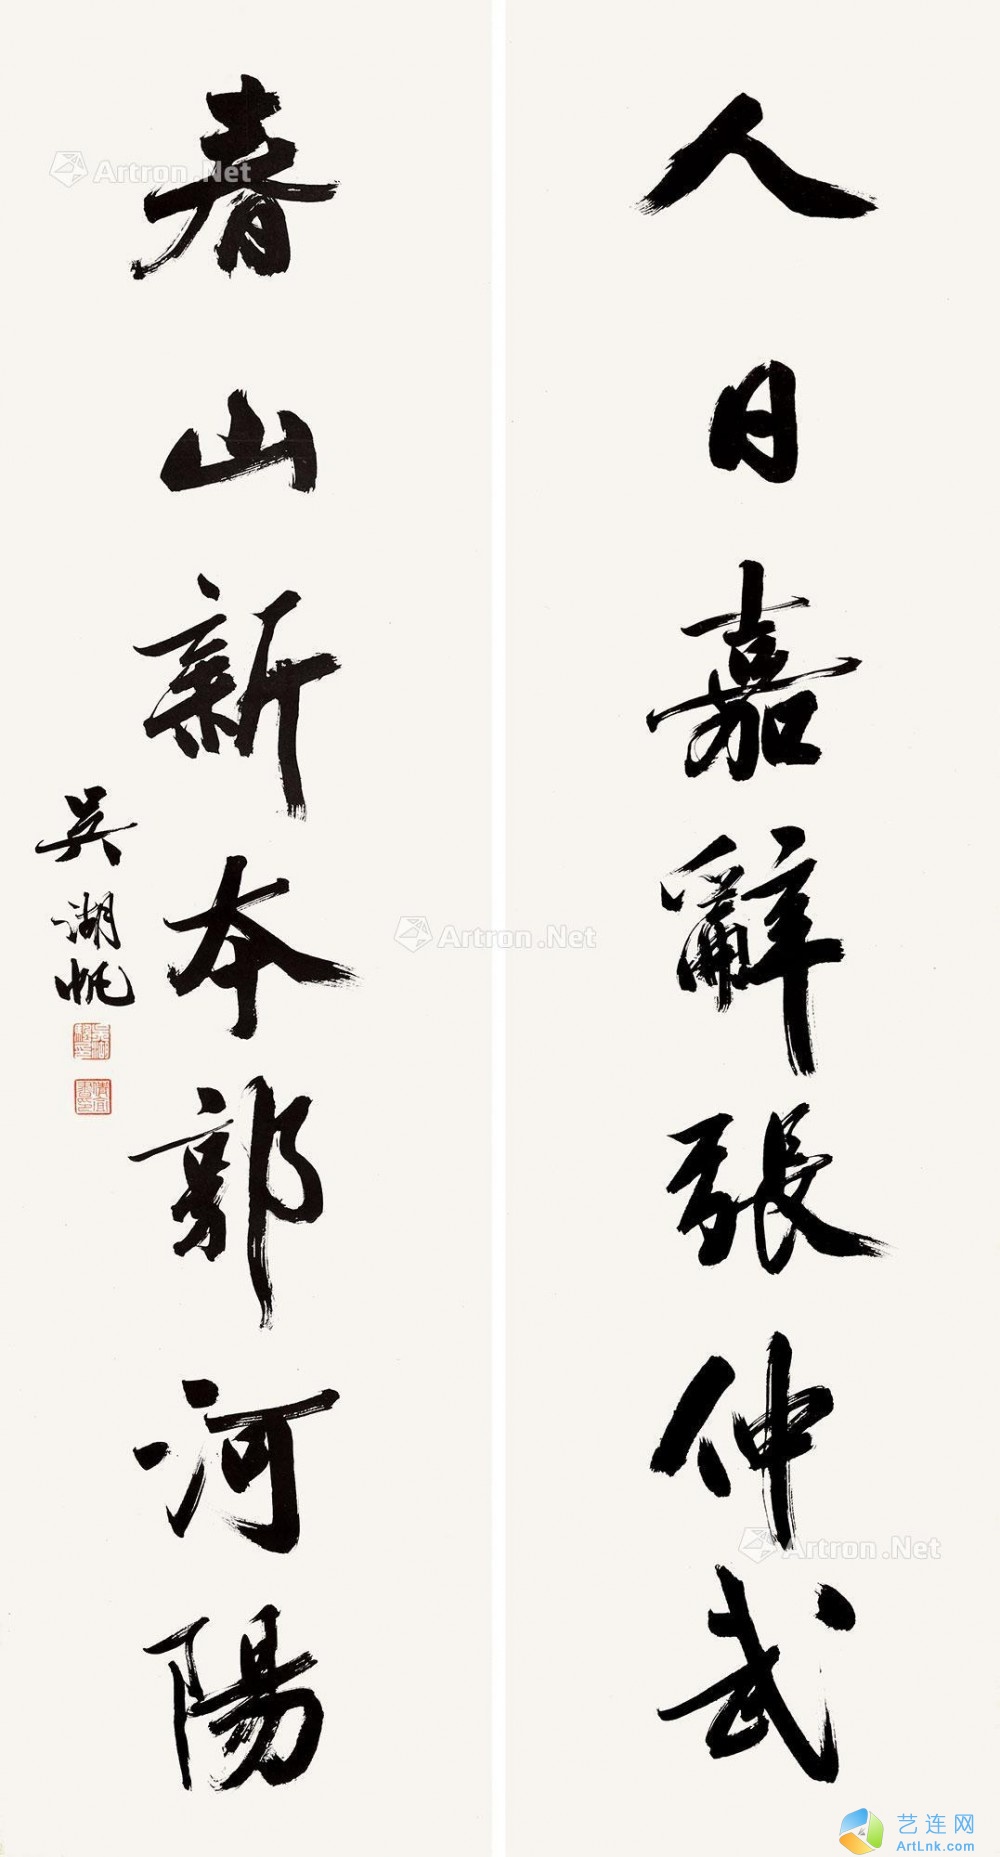 人日嘉辭張仲武
春山新本郭河陽
吳湖帆
Artron.Net
Artron.Net
Artron.Net
艺连网
ArtLnk.com